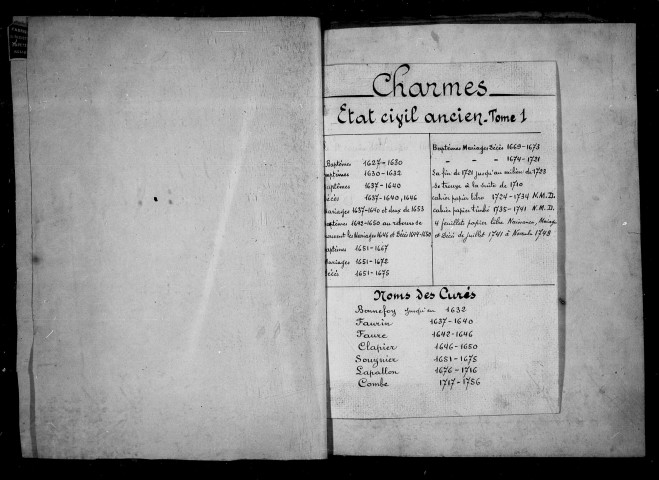 Charmes
Etat civil ancien - Tome 1
Baptêmes 1627-1630
aptêmes 1630-1632
aptêmes 1637-1640
écès 1637-1640, 1646
Mariages 1637-1640 et deux de 1653
aptêmes 1642-1650 au rebours se
trouvent les Mariages 1646 et Décès 1644-1650
aptêmes 1651-1667
Mariages 1651-1672
écès 1651-1675
Baptêmes Mariages Décès 1669-1673
- - - 1674-1721
La fin de 1721 jusqu'au milieu de 1723
se trouve à la suite de 1710
cahier papier libre 1724-1734 N.M.D.
cahier papier timbré 1735-1741 N.M.D.
4 feuillets papier libre Naissances, Mariages
et Décès de juillet 1741 à 1748
Noms des Curés
Bonnefoy jusqu'en 1632
Faurin 1637-1640
Faure 1642-1646
Clapier 1646-1650
Souynier 1651-1675
Lapallon 1676-1716
Combe 1717-1756